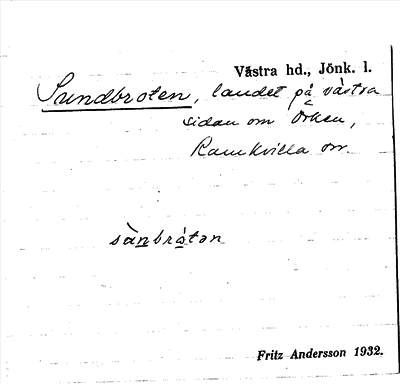 Västra hd., Jönk. l.
Sundbroten, landet på västra
sidan om Örken,
Ramkvilla sn.
sànbrótən
Fritz Andersson 1932.